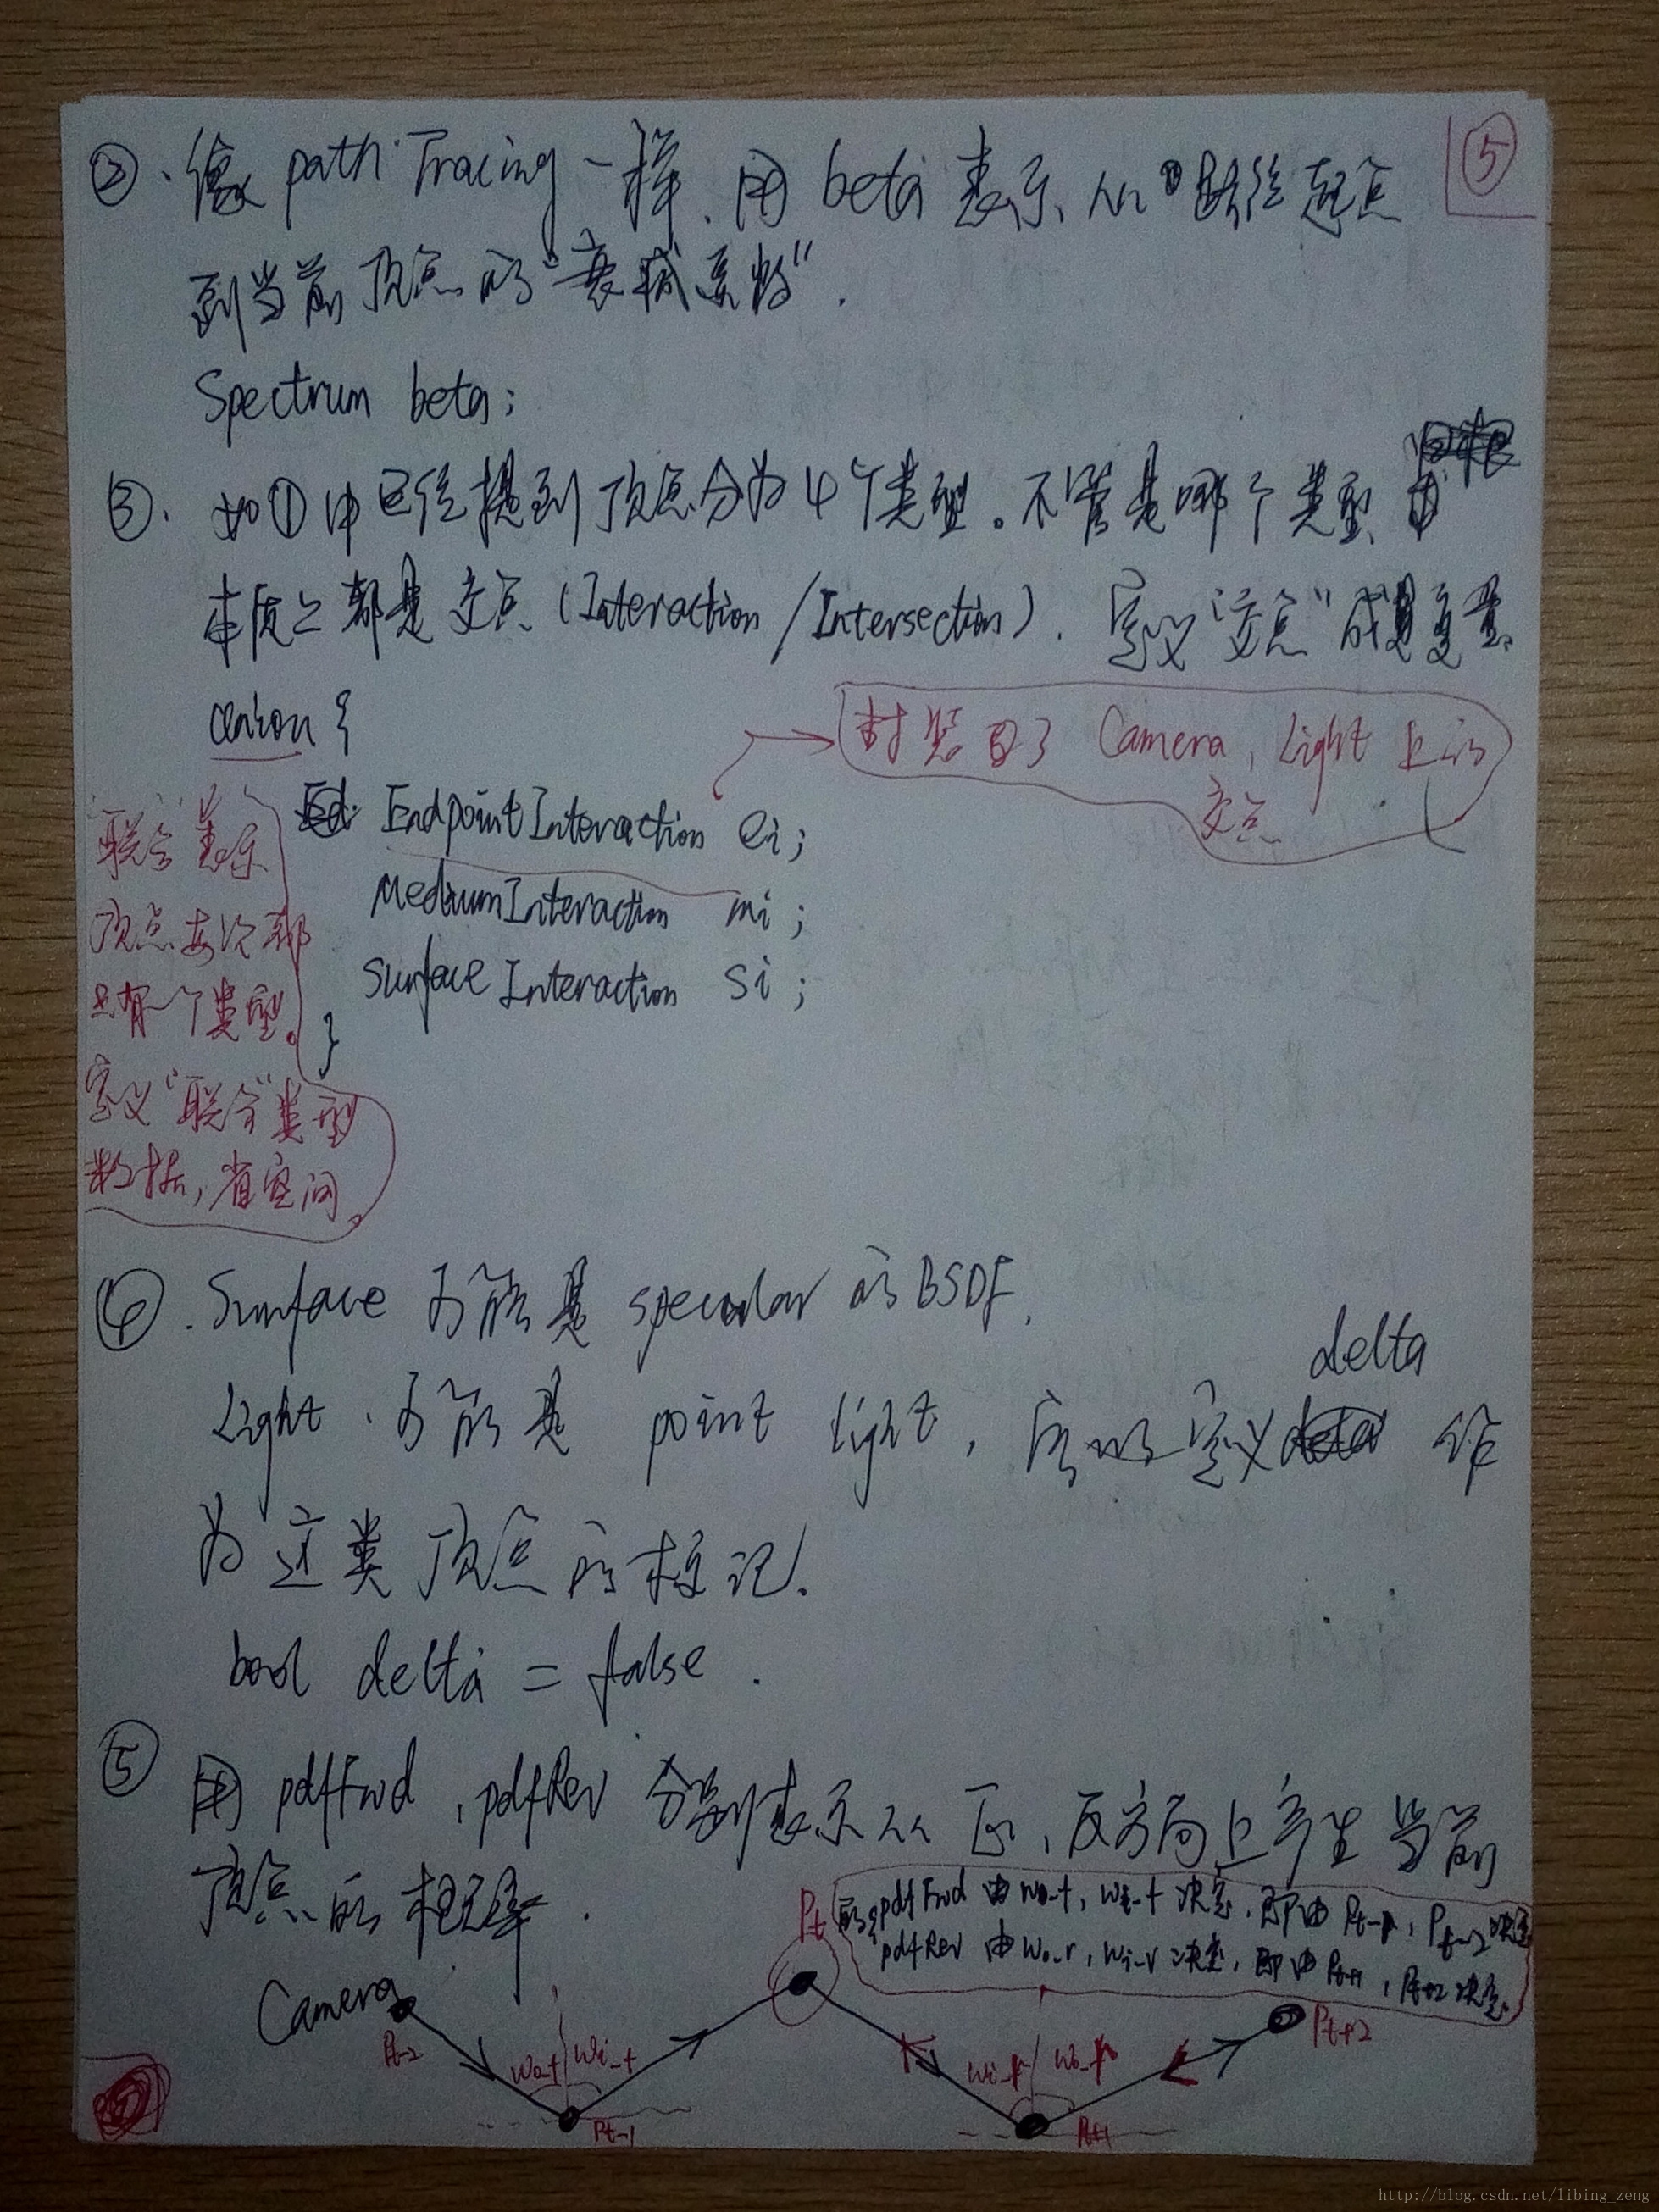 ⑤
②. 像 path Tracing 一样, 用 beta 表示, 从 路径起点
到当前顶点的"衰减系数".
Spectrum beta;
③. 如①中已经提到顶点分为4个类型。不管是哪个类型,
本质上都是交点 (Interaction / Intersection). 定义"交点"成员变量.
union {
封装了 Camera, Light 上的
交点
EndpointInteraction ei;
MediumInteraction mi;
SurfaceInteraction si;
}
联合表示
顶点每次都
只有一个类型。
定义"联合"类型
数据, 省空间.
④. Surface 可能是 specular 的 BSDF.
Light 可能是 point light, 所以定义 delta 作
为这类顶点的标记.
bool delta = false.
⑤ 用 pdfFwd, pdfRev 分别表示从 正, 反方向上产生当前
顶点的概率.
Pt 的 pdfFwd 由 wo-t, wi-t 决定, 即由 Pt-1, Pt-2 决定
pdfRev 由 wo-r, wi-r 决定, 即由 Pt+1, Pt+2 决定.
Camera
Pt-2
wo-t
wi-t
Pt-1
wi-r
wo-r
Pt+1
Pt+2
http://blog.csdn.net/libing_zeng